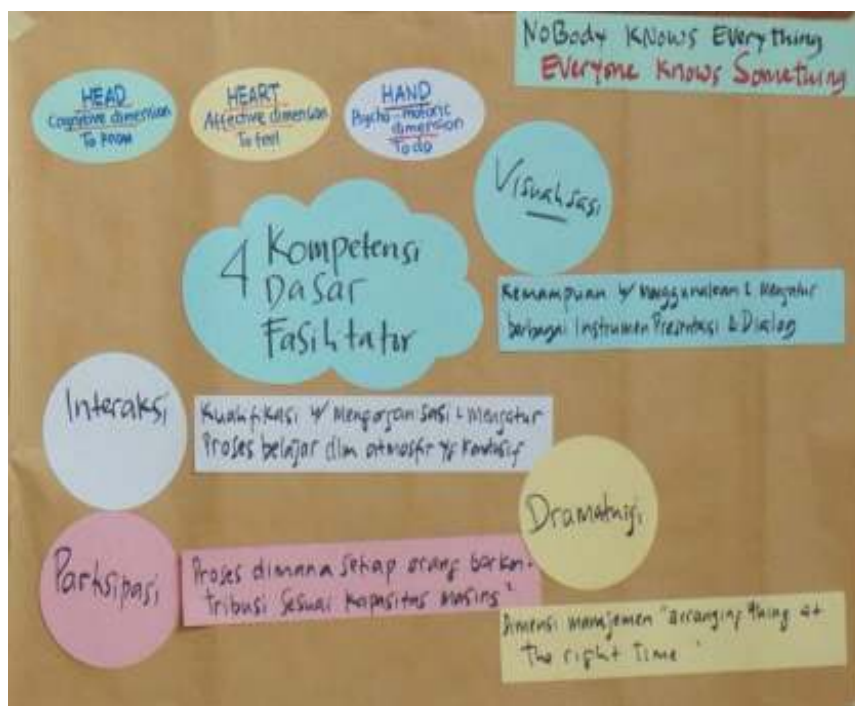 NoBody KNows EveryThing
EVeryone KNows SomeTuing
HEAD
Cognitive dimension
To Know
HEART
Affective dimension
To feel
HAND
Psycho-motoric
dimension
To do
Visualisasi
4 Kompetensi
Dasar
Fasilitator
Kemampuan u/ menggunakan & Mengatur
berbagai Instrumen Presentasi & Dialog
Interaksi
Kualifikasi u/ Mengorganisasi & Mengatur
Proses belajar dlm atmosfir yg Kondusif
Dramaturgi
Partisipasi
Proses dimana setiap orang berkon-
tribusi Sesuai Kapasitas masing²
Dimensi manajemen "arranging thing at
The right Time"